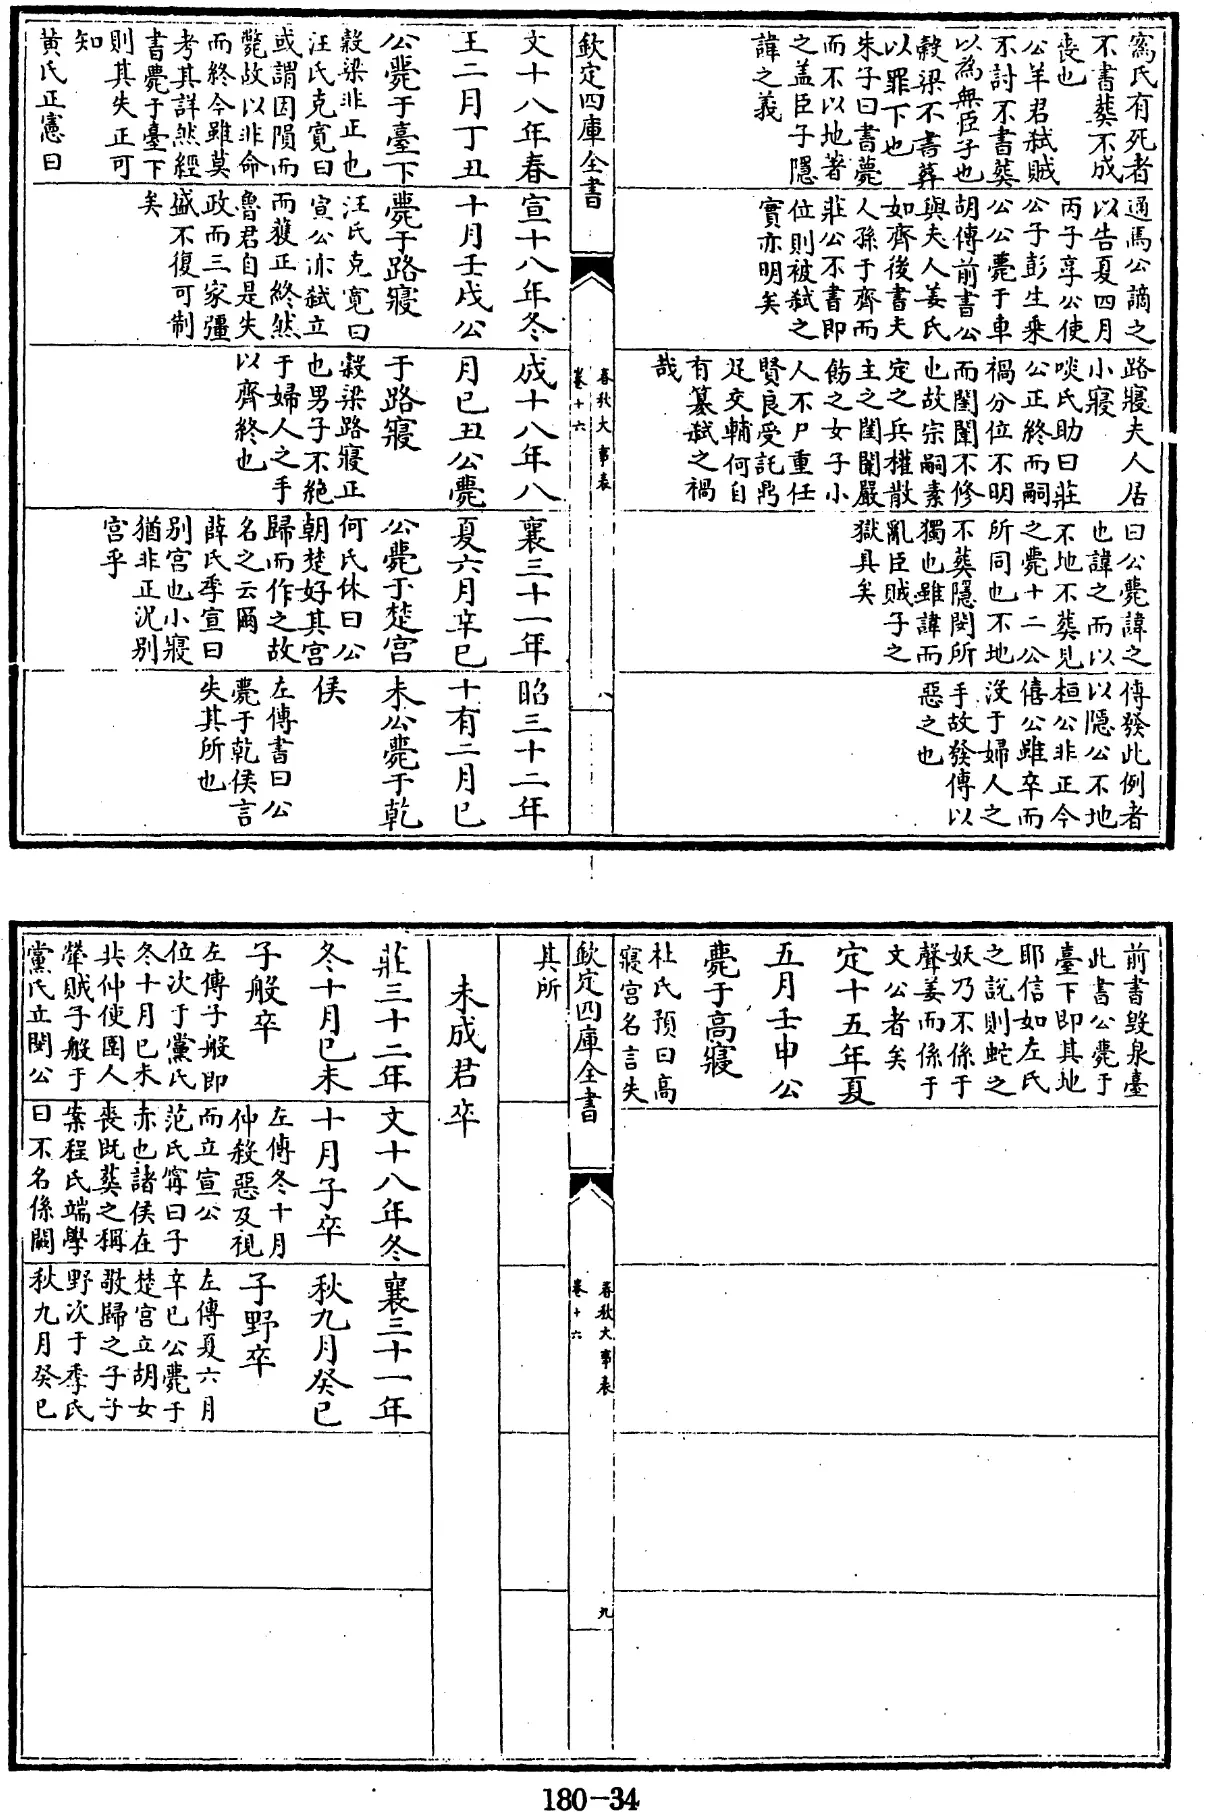 寪氏有死者
不書葬不成
喪也
公羊君弑賊
不討不書葬
以為無臣子也
榖梁不書葬
以罪下也
朱子曰書薨
而不以地著
之盖臣子隱
諱之義
通焉公謫之
以告夏四月
丙子享公使
公子彭生乗
公公薨于車
胡傳前書公
與夫人姜氏
如齊後書夫
人孫于齊而
莊公不書即
位則被弑之
實亦明矣
路寢夫人居
小寢
啖氏助曰莊
公正終而嗣
禍分位不明
而閨閫不修
也故宗嗣素
定之兵權散
主之閨閫嚴
飭之女子小
人不尸重任
賢良受託鼎
足交輔何自
有簒弑之禍
哉
曰公薨諱之
也諱之而以
不地不葬見
之薨十二公
所同也不地
不葬隱閔所
獨也雖諱而
亂臣賊子之
獄具矣
傳發此例者
以隱公不地
桓公非正今
僖公雖卒而
沒于婦人之
手故發傳以
惡之也
欽定四庫全書
春秋大事表
卷十六
八
文十八年春
王二月丁丑
公薨于臺下
榖梁非正也
汪氏克寛曰
或謂因隕而
薨故以非命
而終今雖莫
考其詳然經
書薨于臺下
則其失正可
知
黄氏正憲曰
宣十八年冬
十月壬戌公
薨于路寢
汪氏克寛曰
宣公亦弑立
而獲正終然
魯君自是失
政而三家彊
盛不復可制
矣
成十八年八
月已丑公薨
于路寢
榖梁路寢正
也男子不絶
于婦人之手
以齊終也
襄三十一年
夏六月辛已
公薨于楚宫
何氏休曰公
朝楚好其宫
歸而作之故
名之云爾
薛氏季宣曰
别宫也小寢
猶非正況别
宫乎
昭三十二年
十有二月已
未公薨于乾
侯
左傳書曰公
薨于乾侯言
失其所也
前書毁泉臺
此書公薨于
臺下即其地
耶信如左氏
之説則蛇之
妖乃不係于
聲姜而係于
文公者矣
定十五年夏
五月壬申公
薨于高寢
杜氏預曰高
寢宫名言失
欽定四庫全書
春秋大事表
卷十六
九
其所
未成君卒
莊三十二年
冬十月已未
子般卒
左傳子般即
位次于黨氏
冬十月已未
共仲使圉人
犖賊子般于
黨氏立閔公
文十八年冬
十月子卒
左傳冬十月
仲殺惡及視
而立宣公
范氏甯曰子
赤也諸侯在
喪既葬之稱
案程氏端學
曰不名係闕
襄三十一年
秋九月癸已
子野卒
左傳夏六月
辛已公薨于
楚宫立胡女
敬歸之子子
野次于季氏
秋九月癸已
180-34